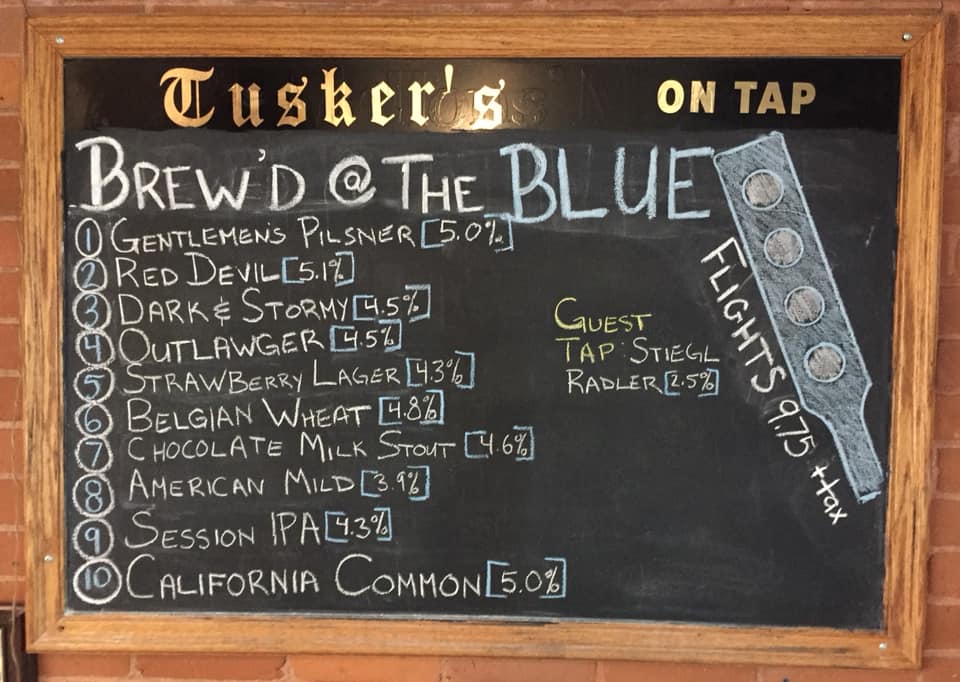 Tusker's ON TAP
BREW'D @ THE BLUE
1 GENTLEMEN'S PILSNER [5.0%]
2 RED DEVIL [5.1%]
3 DARK & STORMY [4.5%]
4 OUTLAWGER [4.5%]
5 STRAWBERRY LAGER [4.3%]
6 BELGIAN WHEAT [4.8%]
7 CHOCOLATE MILK STOUT [4.6%]
8 AMERICAN MILD [3.9%]
9 SESSION IPA [4.3%]
10 CALIFORNIA COMMON [5.0%]
GUEST
TAP: STIEGL
RADLER [2.5%]
FLIGHTS 9.75 ++tax